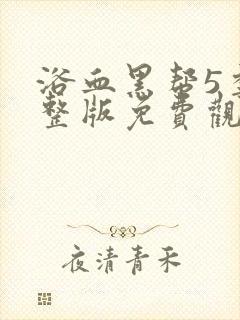 浴血黑帮5季
整版免費觀
夜清青禾